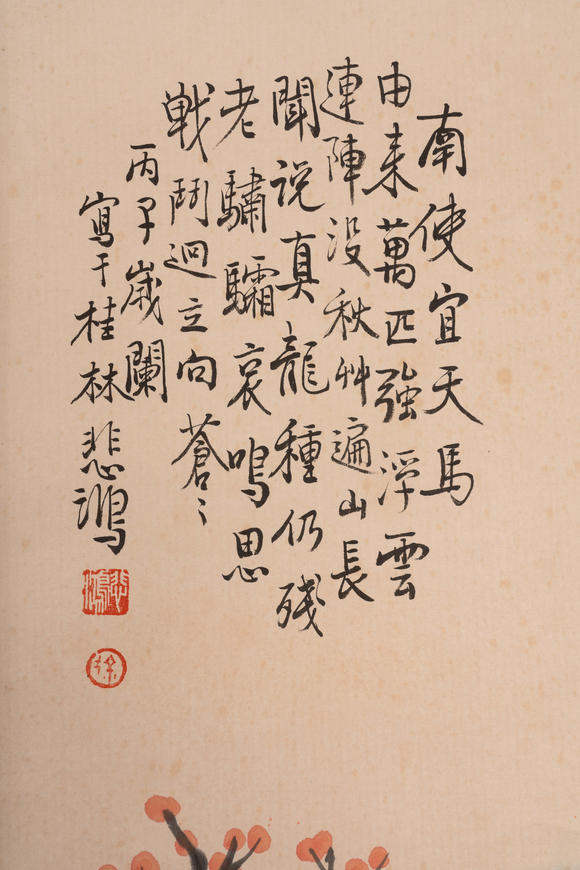 南使宜天馬
由来萬匹強浮雲
連陣没秋艸遍山長
聞说真龍種仍残
老驌驦哀鳴思
戦鬥迥立向蒼〻
丙子歲闌
寫于桂林悲鴻
悲鴻
徐